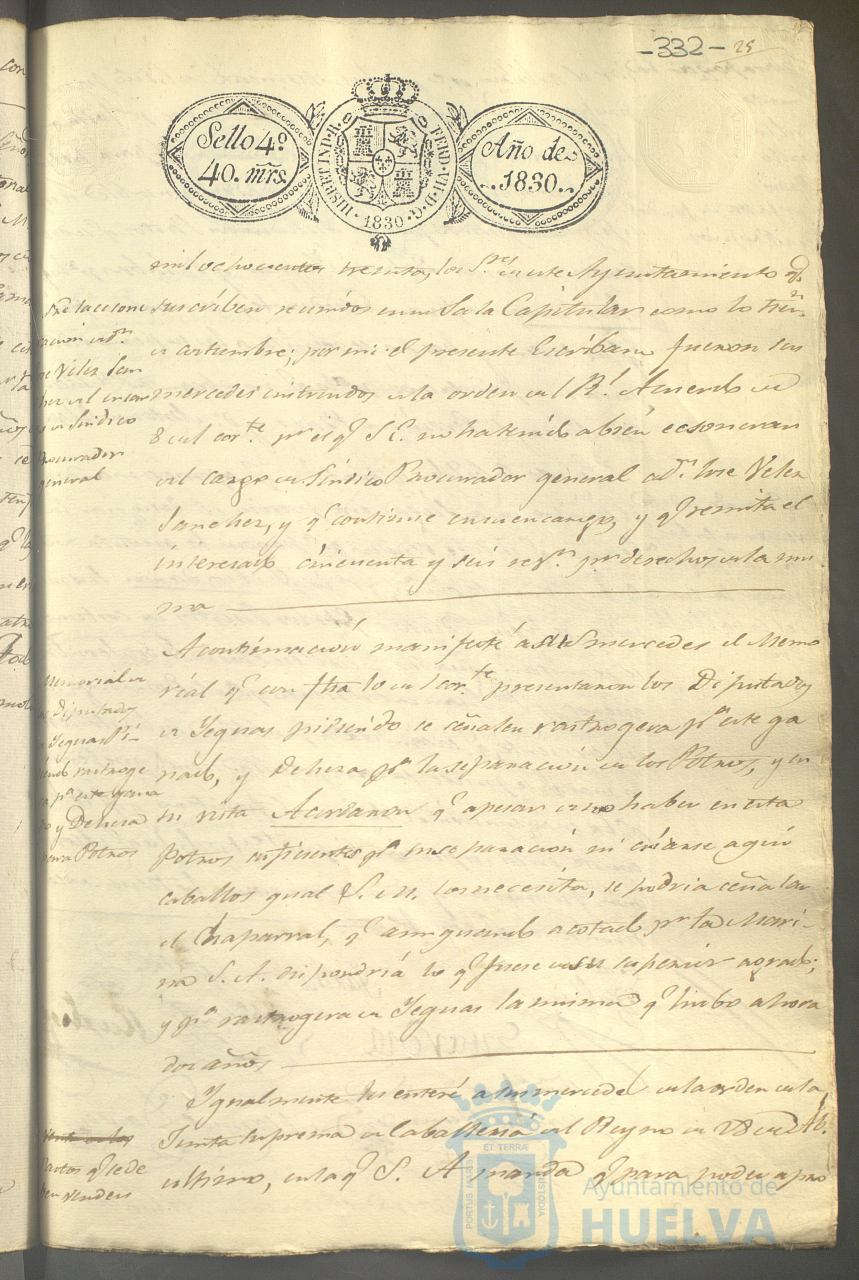 -332- 25
Sello 4º
40. mrs.
HISP. ET IND. R. FERD. VII. D. G. 1830
Año de
1830.
mil ochocientos treinta, los S.res de este Ayuntamiento q.e
suscriben reunidos en su Sala Capitular como lo tien.n
de costumbre; por mi el presente Escribano fueron sus
mercedes instruidos de la orden del R.l Acuerdo de
8 del cor.te p.r el q.e S. E. no ha tenido a bien exsonerar
del cargo de Síndico Procurador general a D.n Jose Velez
Sanchez, y q.e continue en su encargo, y q.e remita el
interesado cincuenta y seis r.s v.n p.r derechos de la mis-
ma
Sre la exone
ración a D.n
Velez San
chez del encar
de Sindico
Procurador
general
A continuación manifesté á sus mercedes el Memo
rial q.e con fha lo del cor.te presentaron los Diputados
de Yeguas pidiendo se señalen rastrogera p.a este ga
nado, y Dehesa p.a la separación de los Potros, y en
su vista Acordaron q.e apesar de no haber en esta
Potros suficientes p.a su separación ni criarse aqui
caballos qual S. M. los necesita, se podria señalar
el Chaparral, q.e aunquando acotado p.r la Mari-
na S. A. dispondría lo q.e fuese de su superior agrado;
y p.a rastrogera de Yeguas la misma q.e hubo ahora
dos años
Memorial de
Diputados
Yeguas Pi-
diendo rastroge
p.a este gana
y Dehesa
para Potros
Igualmente les enteré a sus mercedes de la orden de la
Junta Suprema de Caballeria del Reyno de 28 de
ultimo, en la q.e S. A manda q.e para poder apro
q.e se de
ben vender
ET TERRÆ
PORTUS MARIS
CUSTODIA
Ayuntamiento de
HUELVA